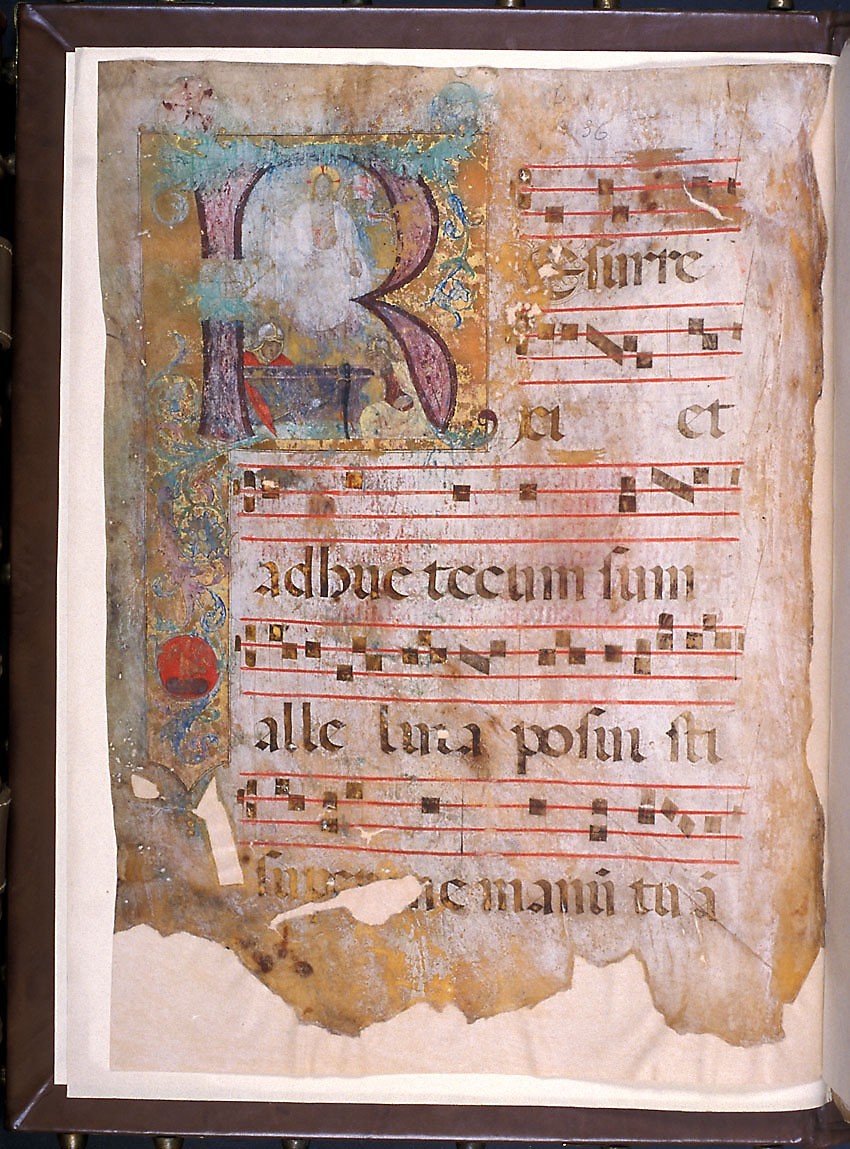 Resurre
xi et
adhuc tecum sum
alle luia posui sti
super me manū tu ā